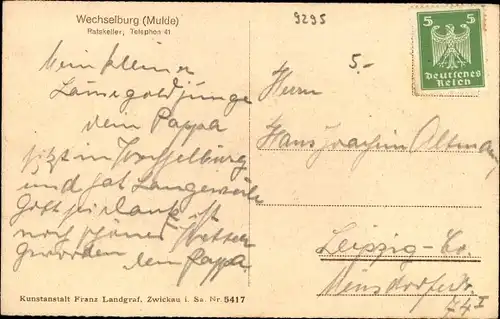 Wechselburg (Mulde)
Ratskeller, Telephon 41
9295
5.-
5 5
Deutsches
Reich
Mein kleiner
Lausegoldjunge
dein Pappa
sitzt in Wechselburg
und hat Langeweile
Gott sei Dank ist
noch schönes Wetter
geworden
dein Pappa
Herrn
Hans Joachim Altmann
Leipzig-Co.
74 I
Kunstanstalt Franz Landgraf, Zwickau i. Sa. Nr. 5417